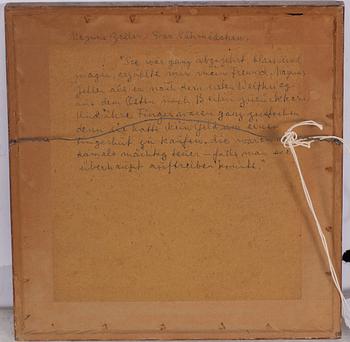 Magnus Zeller: Das Nähmädchen.
"Sie war ganz abgezehrt, blass und
mager, erzählte mir mein Freund, Magnus
Zeller als er nach dem ersten Weltkrieg
aus dem Osten nach Berlin zurückkam.
Und ihre Finger waren ganz zerstochen
denn sie hatte kein Geld um einen
Fingerhut zu kaufen, die waren
damals mächtig teuer - falls man sie
überhaupt auftreiben konnte."